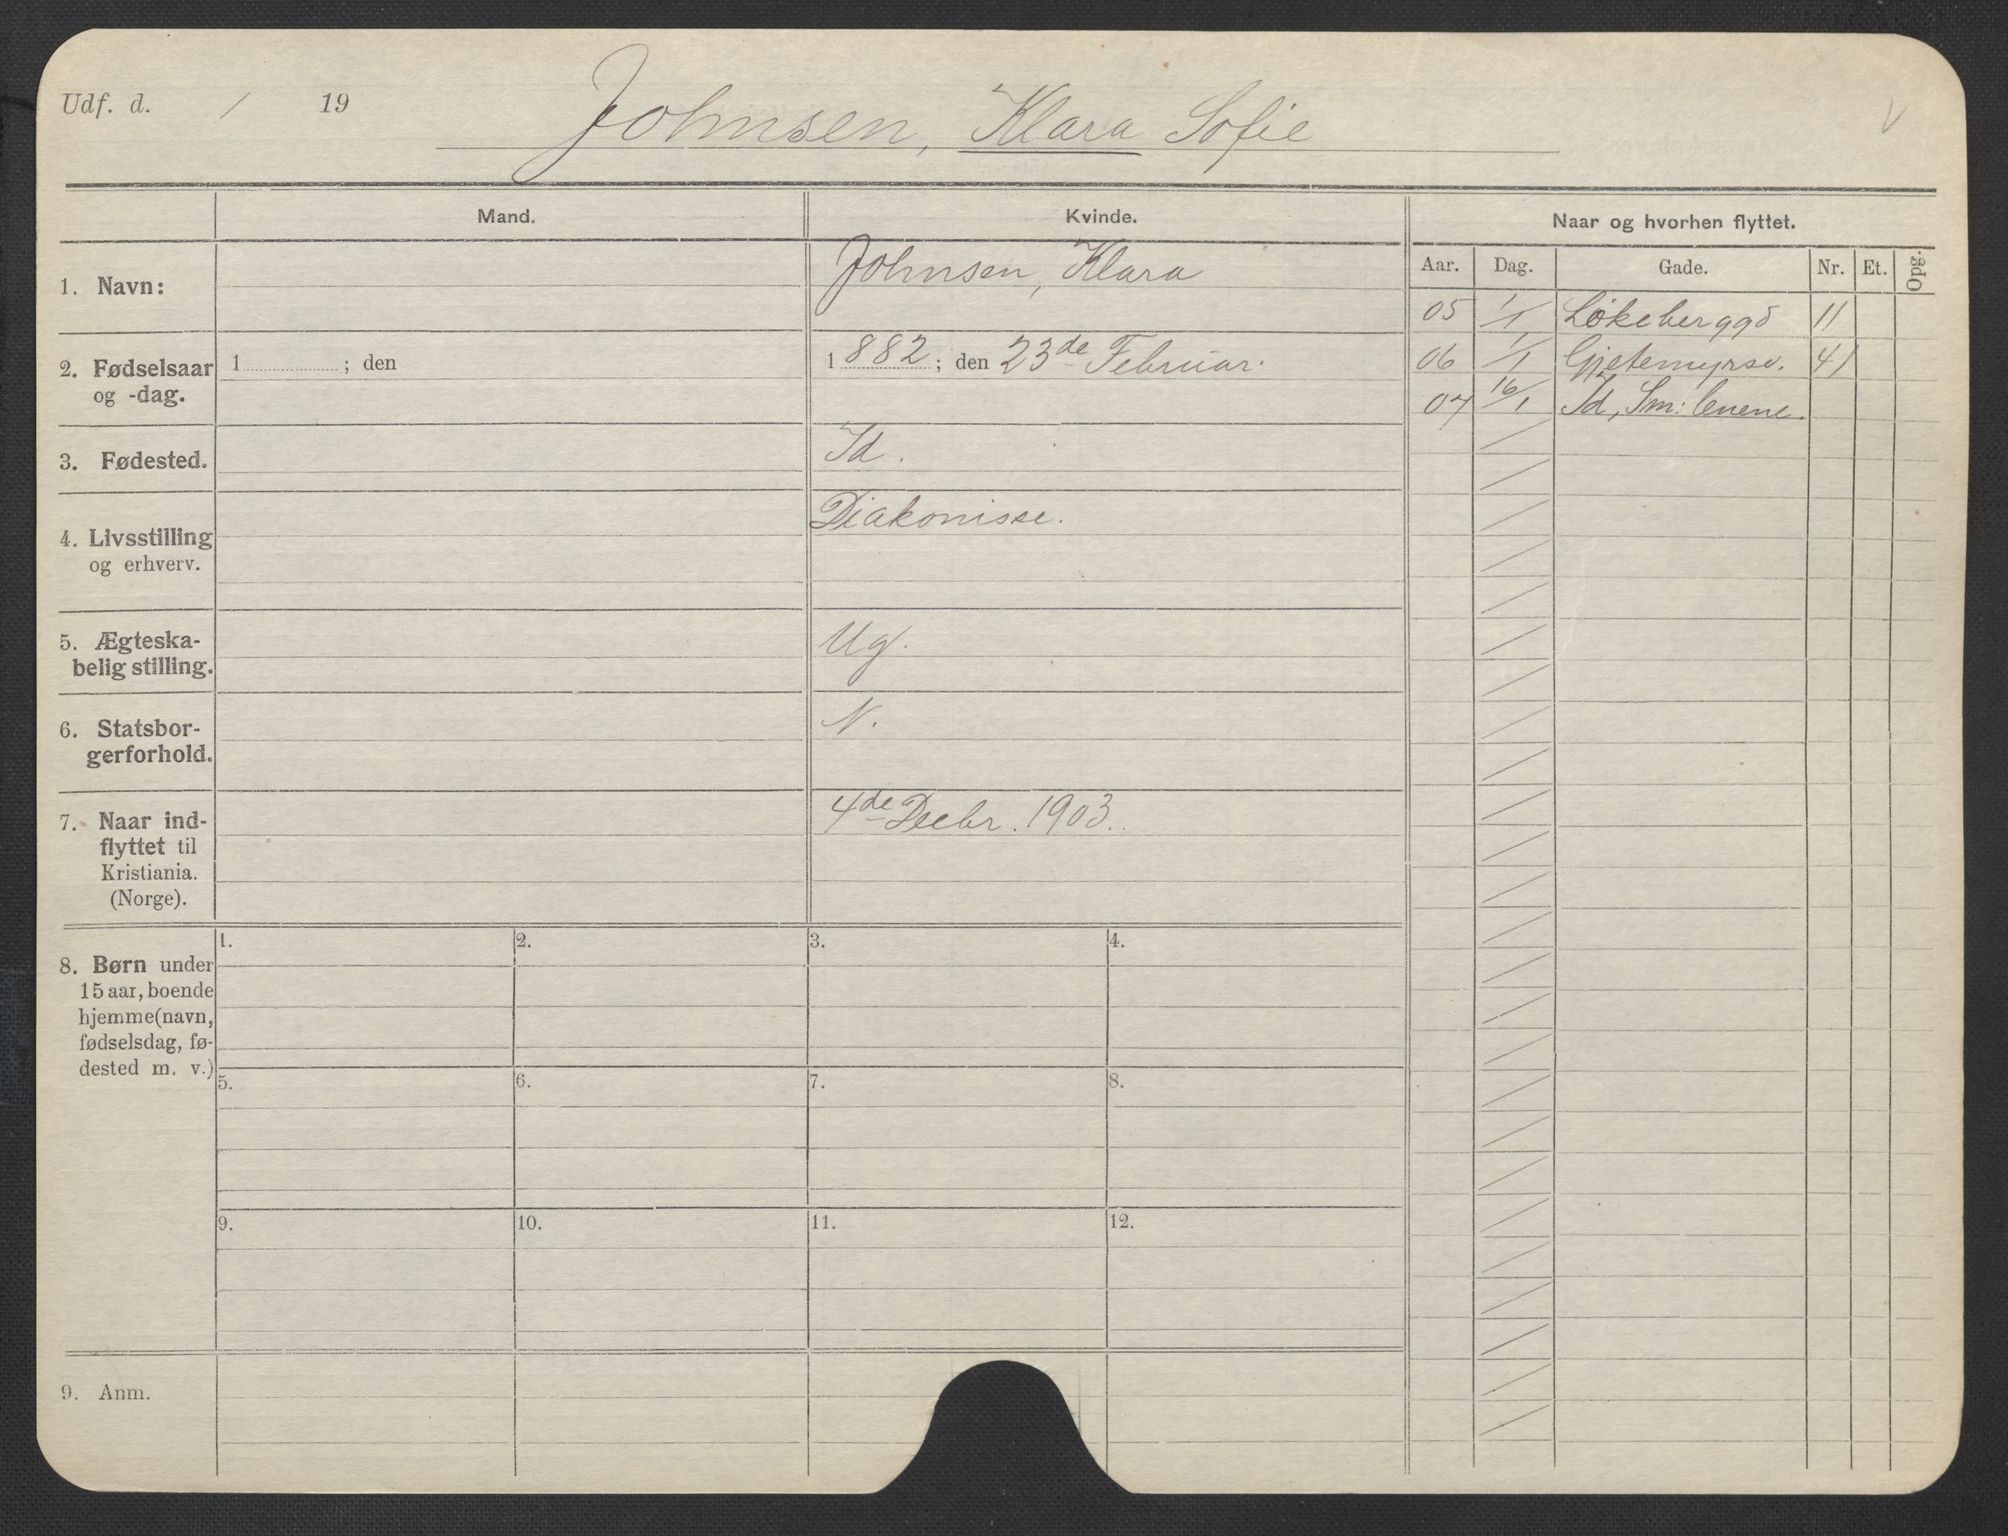 Udf. d. / 19
Johnsen, Klara Sofie
V
Mand.
Kvinde.
Naar og hvorhen flyttet.
Aar. Dag. Gade. Nr. Et. Opg.
1. Navn:
Johnsen, Klara
05 1/1 Løkeberggd 11
2. Fødselsaar
og -dag.
1 ; den
1882; den 23de Februar.
06 1/1 Gjetemyrsv. 41
07 16/1 Id, Sm:lenene.
3. Fødested.
Id.
4. Livsstilling
og erhverv.
Diakonisse.
5. Ægteska-
belig stilling.
Ug.
6. Statsbor-
gerforhold.
N.
7. Naar ind-
flyttet til
Kristiania.
(Norge).
4de Decbr. 1903.
8. Børn under
15 aar, boende
hjemme (navn,
fødselsdag, fø-
dested m. v.)
1. 2. 3. 4.
5. 6. 7. 8.
9. 10. 11. 12.
9. Anm.